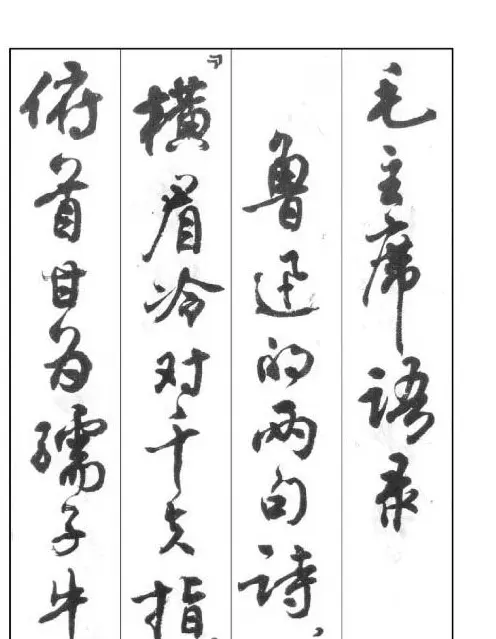 毛主席语录
鲁迅的两句诗，
『横眉冷对千夫指，
俯首甘为孺子牛